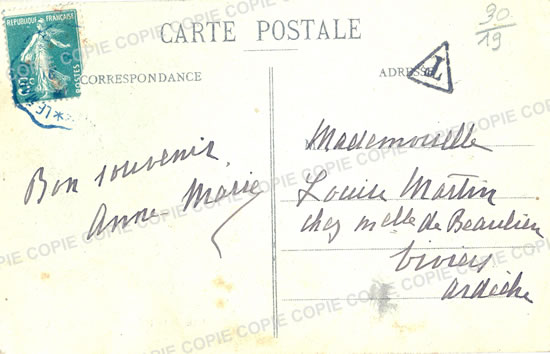 REPUBLIQUE FRANÇAISE
POSTES
CARTE POSTALE
90
19
CORRESPONDANCE
ADRESSE
T
Bon souvenir
Anne-Marie
Mademoiselle
Louise Martin
chez Melle de Beaulieu
Viviers
Ardèche
COPIE COPIE COPIE COPIE COPIE COPIE